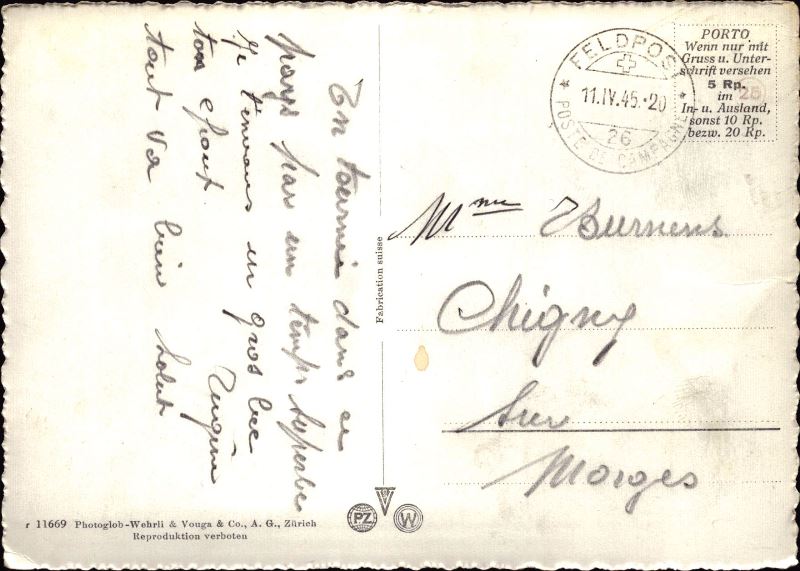 En tournée dans ce
pays par un temps superbe
Je t'envois un gros bec
ton époux Eugène
tout va bien Salut
Fabrication suisse
r 11669 Photoglob-Wehrli & Vouga & Co., A. G., Zürich
Reproduktion verboten
PZ
W
FELDPOST
11.IV.45.-20
26
POSTE DE CAMPAGNE
PORTO
Wenn nur mit
Gruss u. Unter-
schrift versehen
5 Rp.
im
In- u. Ausland,
sonst 10 Rp.
bezw. 20 Rp.
25
Mme Burnens
Chigny
sur
Morges